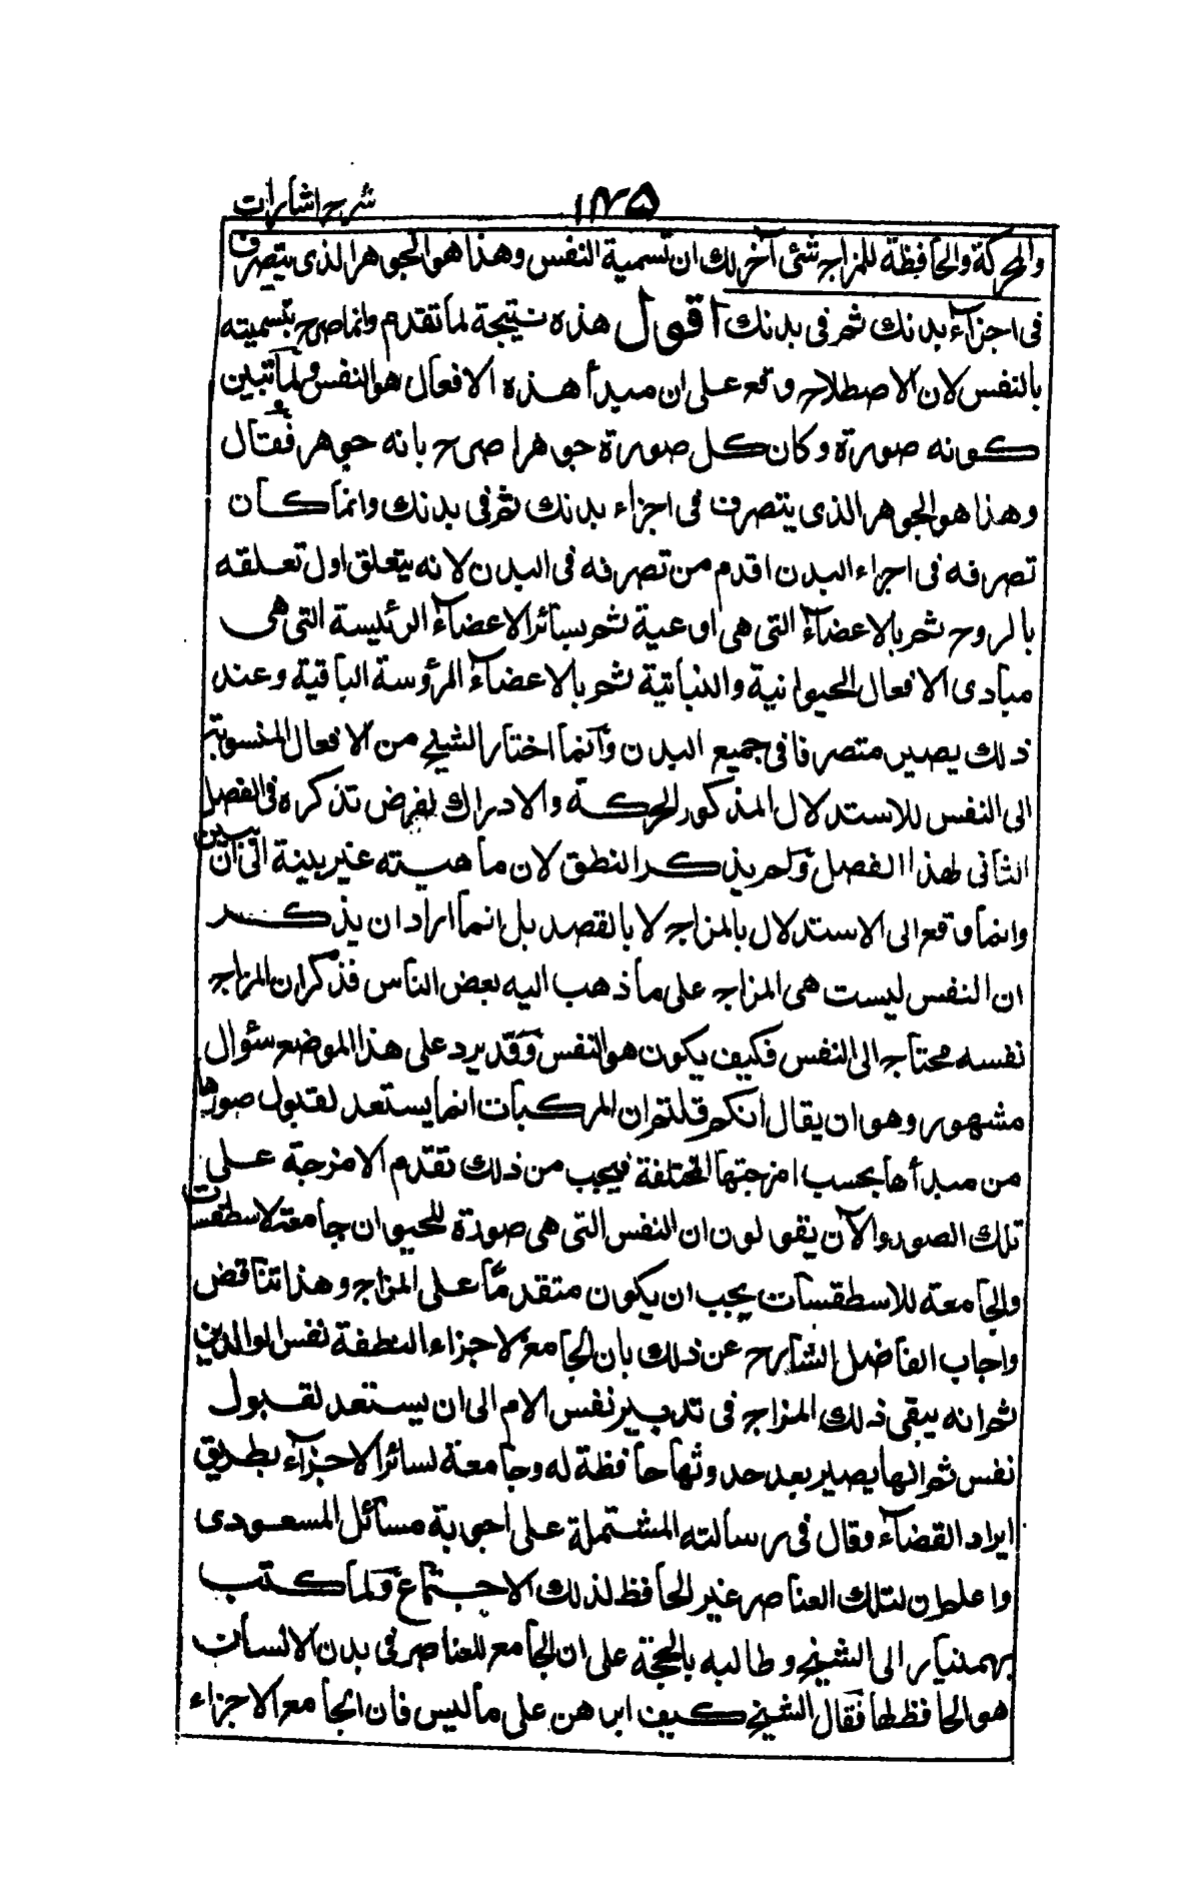 شرح اشارات
١٢٥
والمحركة والحافظة للمزاج شئ آخر لك ان تسمية النفس وهذا هو الجوهر الذى يتصرف
فى اجزاء بدنك ثم فى بدنك اقول هذه نتيجة لما تقدم وانما صرح بتسميته
بالنفس لان الاصطلاح وقع على ان مبدأ هذه الافعال هو النفس ولما تبين
كونه صورة وكان كل صورة جوهرا صرح بانه جوهر فقال
وهذا هو الجوهر الذى يتصرف فى اجزاء بدنك ثم فى بدنك وانما كان
تصرفه فى اجزاء البدن اقدم من تصرفه فى البدن لانه يتعلق اول تعلقه
بالروح ثم بالاعضاء التى هى اوعية ثم بسائر الاعضاء الرئيسة التى هى
مبادى الافعال الحيوانية والنباتية ثم بالاعضاء المرؤسة الباقية وعند
ذلك يصير متصرفا فى جميع البدن وانما اختار الشيخ من الافعال المنسوبة
الى النفس للاستدلال المذكور الحركة والادراك لغرض تذكره فى الفصل
الثانى لهذا الفصل ولم يذكر النطق لان ماهيته غير بينة الى ان سيبين
وانما وقع الى الاستدلال بالمزاج لا بالقصد بل انما اراد ان يذكر
ان النفس ليست هى المزاج على ما ذهب اليه بعض الناس فذكر ان المزاج
نفسه محتاج الى النفس فكيف يكون هو النفس وقد يرد على هذا الموضع سؤال
مشهور وهو ان يقال انكم قلتم ان المركبات انما يستعد لقبول صورها
من مبدأها بحسب امزجتها المختلفة فيجب من ذلك تقدم الامزجة على
تلك الصور والآن يقولون ان النفس التى هى صورة للحيوان جامعة لاسطقسات
والجامعة للاسطقسات يجب ان يكون متقدما على المزاج وهذا تناقض
واجاب الفاضل الشارح عن ذلك بان الجامع لاجزاء النطفة نفس الوالدين
ثم انه يبقى ذلك المزاج فى تدبير نفس الام الى ان يستعد لقبول
نفس ثم انها يصير بعد حدوثها حافظة له وجامعة لسائر الاجزاء بطريق
ايراد القضاء وقال فى رسالته المشتملة على اجوبة مسائل المسعودى
واعلم ان لتلك العناصر غير الحافظ لذلك الاجتماع ولما كتب
بهمنيار الى الشيخ وطالبه بالحجة على ان الجامع للعناصر فى بدن الانسان
هو الحافظ لها فقال الشيخ كيف ابرهن على ما ليس فان الجامع الاجزاء